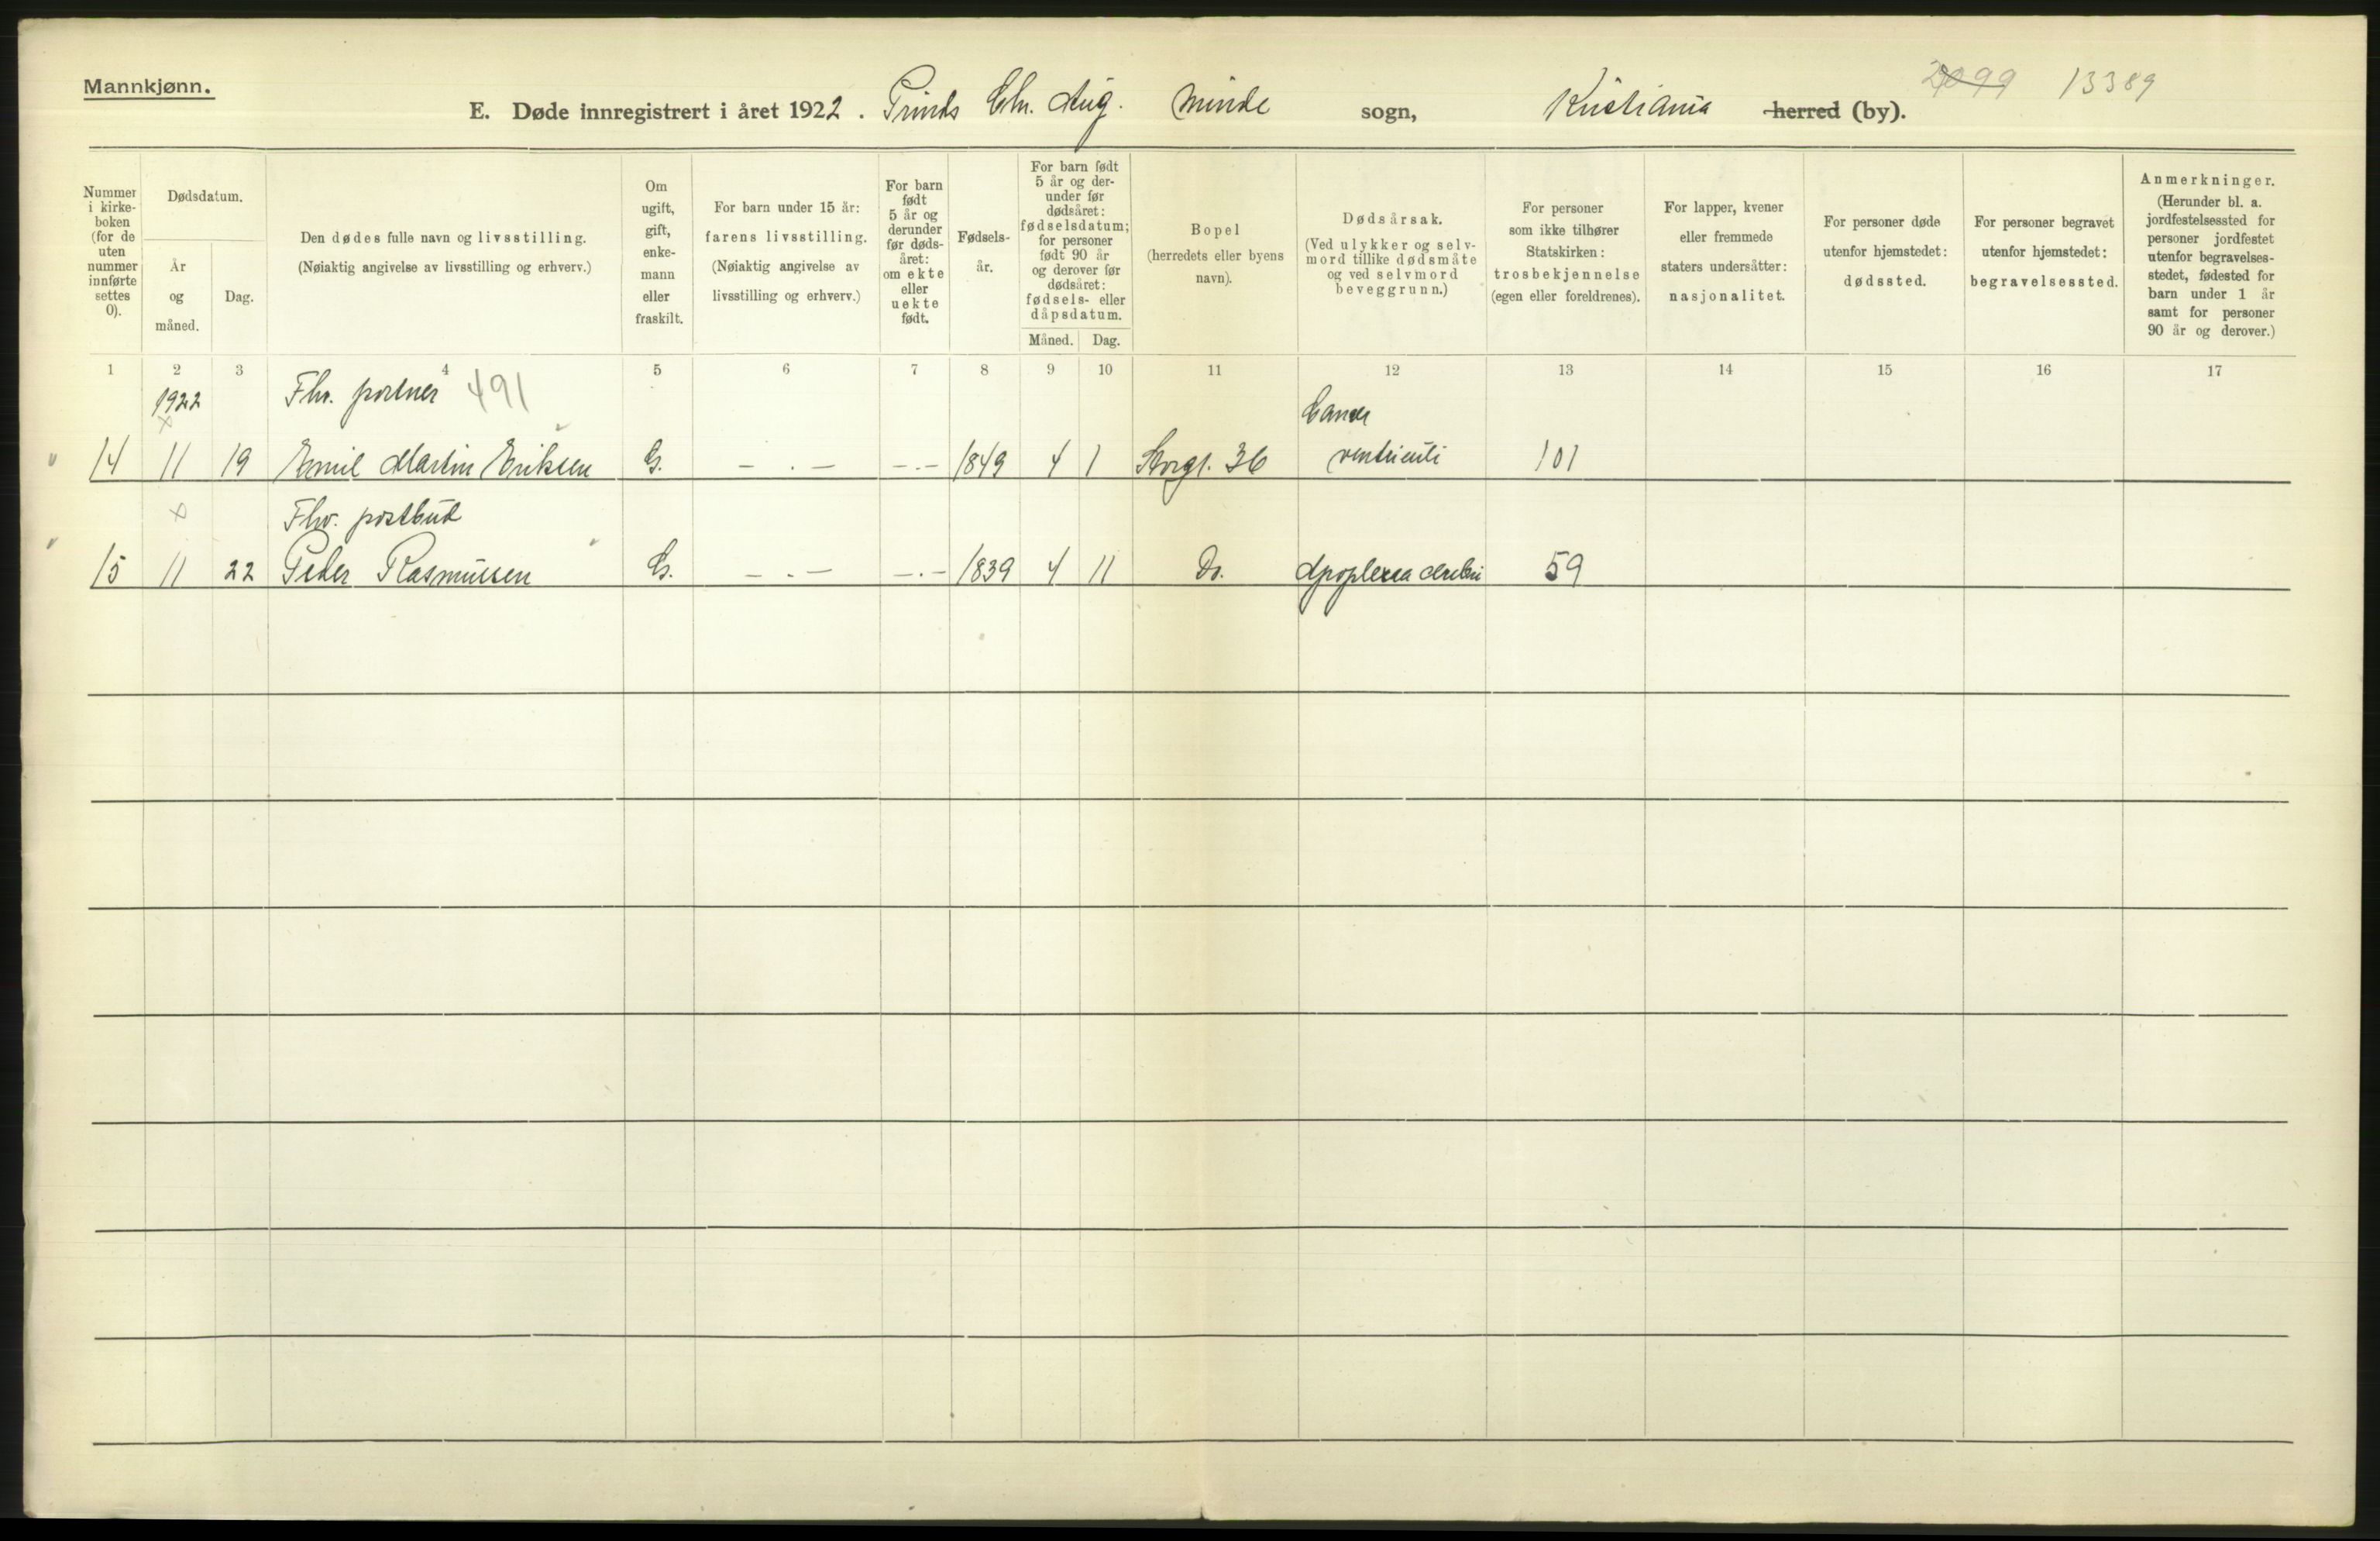 Mannkjønn.
E. Døde innregistrert i året 1922. Prinds Chr. Aug. Minde sogn, Kristiania herred (by). 2099 13389
Nummer i kirke-boken (for de uten nummer innførte settes 0).
Dødsdatum.
År og måned.
Dag.
Den dødes fulle navn og livsstilling.
(Nøiaktig angivelse av livsstilling og erhverv.)
Om ugift, gift, enke-mann eller fraskilt.
For barn under 15 år:
farens livsstilling.
(Nøiaktig angivelse av livsstilling og erhverv.)
For barn født 5 år og derunder før døds-året: om ekte eller uekte født.
Fødsels-år.
For barn født 5 år og der-under før dødsåret: fødselsdatum; for personer født 90 år og derover før dødsåret: fødsels- eller dåpsdatum.
Måned. Dag.
Bopel
(herredets eller byens navn).
Dødsårsak.
(Ved ulykker og selv-mord tillike dødsmåte og ved selvmord beveggrunn.)
For personer som ikke tilhører Statskirken: trosbekjennelse (egen eller foreldrenes).
For lapper, kvener eller fremmede staters undersåtter: nasjonalitet.
For personer døde utenfor hjemstedet: dødssted.
For personer begravet utenfor hjemstedet: begravelsessted.
Anmerkninger.
(Herunder bl. a. jordfestelsessted for personer jordfestet utenfor begravelses-stedet, fødested for barn under 1 år samt for personer 90 år og derover.)
1 2 3 4 5 6 7 8 9 10 11 12 13 14 15 16 17
1922 Fhv. portner 491 Cancer
14 11 19 Emil Martin Eriksen G. — . — —.— 1849 4 1 Storgt. 36 ventriculi 101
x Fhv. postbud
15 11 22 Peder Rasmussen G. — . — —.— 1839 4 11 Do. Apoplexia cerebri 59